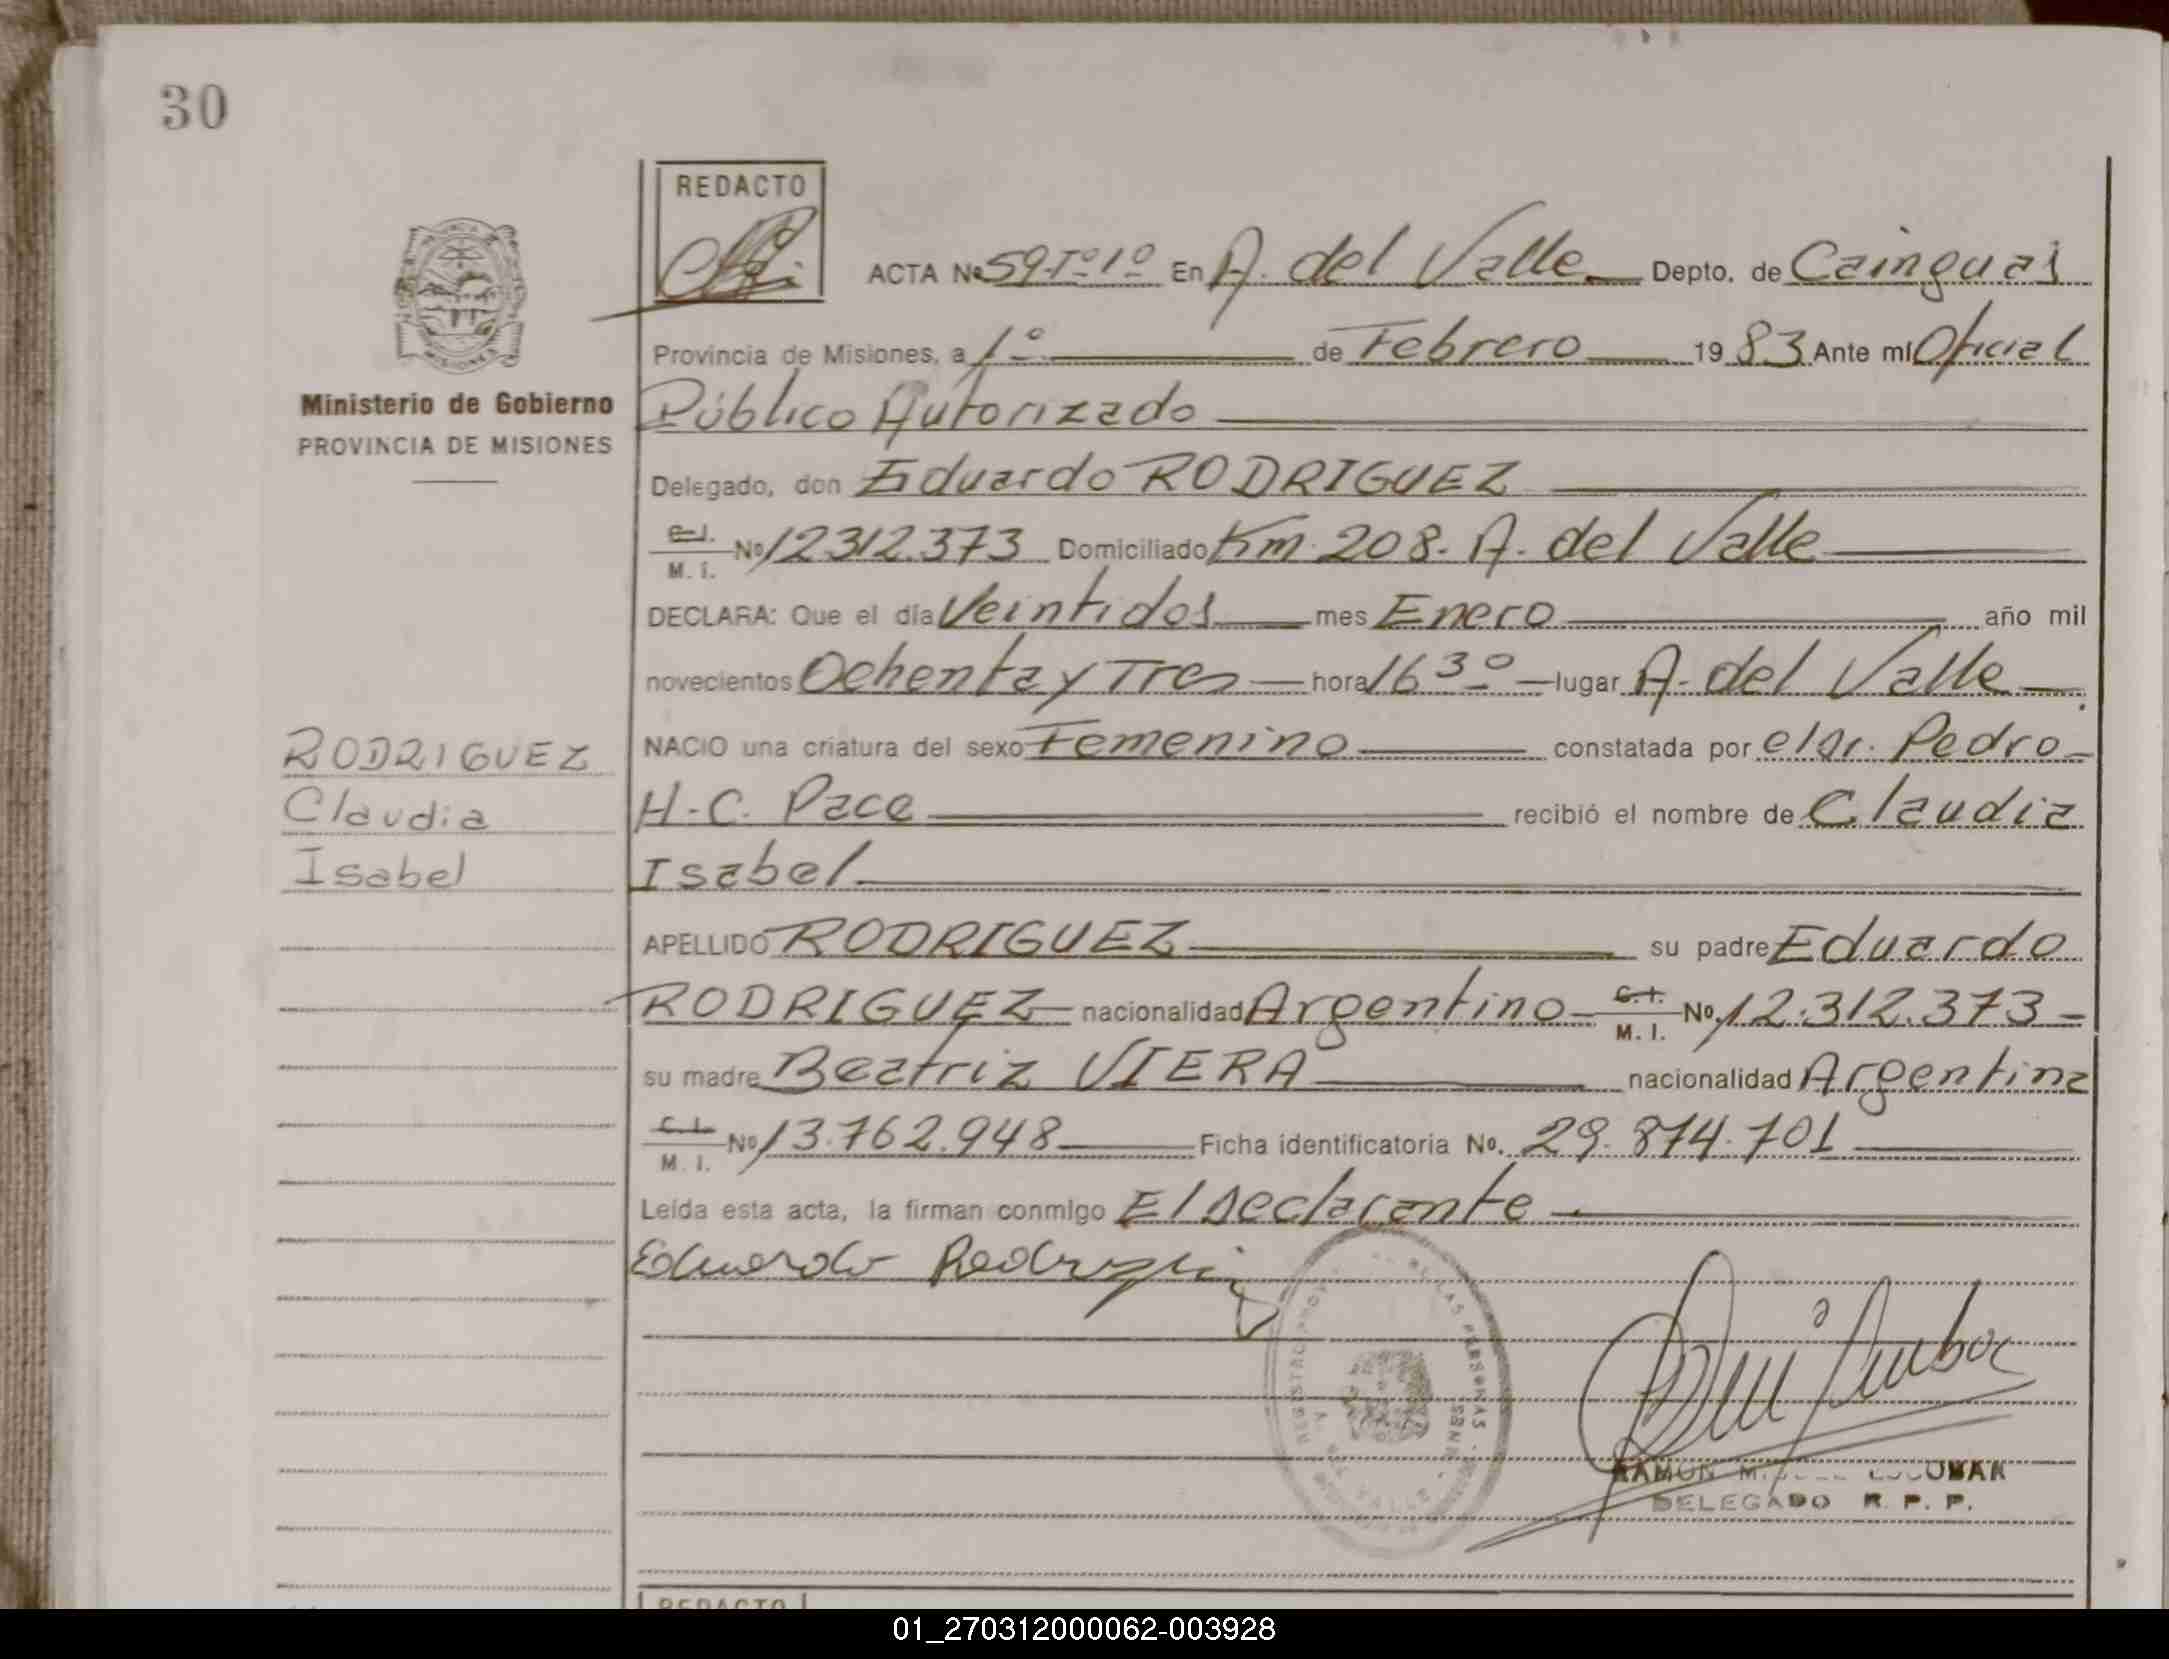 30
REDACTO
ACTA No 59-Tº1º En A. del Valle Depto. de Cainguas
Provincia de Misiones, a 1º de Febrero 1983 Ante mí Oficial
Público Autorizado
Ministerio de Gobierno
PROVINCIA DE MISIONES
Delegado, don Eduardo RODRIGUEZ
C.I.
M. I. No 12312.373 Domiciliado Km. 208. A. del Valle
DECLARA: Que el día Veintidos mes Enero año mil
novecientos Ochenta y Tres hora 16 30 lugar A. del Valle
NACIO una criatura del sexo Femenino constatada por el Dr. Pedro
H. C. Pace recibió el nombre de Claudia
Isabel
RODRIGUEZ
Claudia
Isabel
APELLIDO RODRIGUEZ su padre Eduardo
RODRIGUEZ nacionalidad Argentino C.I.
M. I. No. 12.312.373
su madre Beatriz VIERA nacionalidad Argentina
C.I.
M. I. No 13.762.948 Ficha identificatoria No. 29.874.701
Leída esta acta, la firman conmigo El declarante
Eduardo Rodriguez
DE LAS PERSONAS
VALLE
RAMON ESCOBAR
DELEGADO R. P. P.
REDACTO
01_270312000062-003928